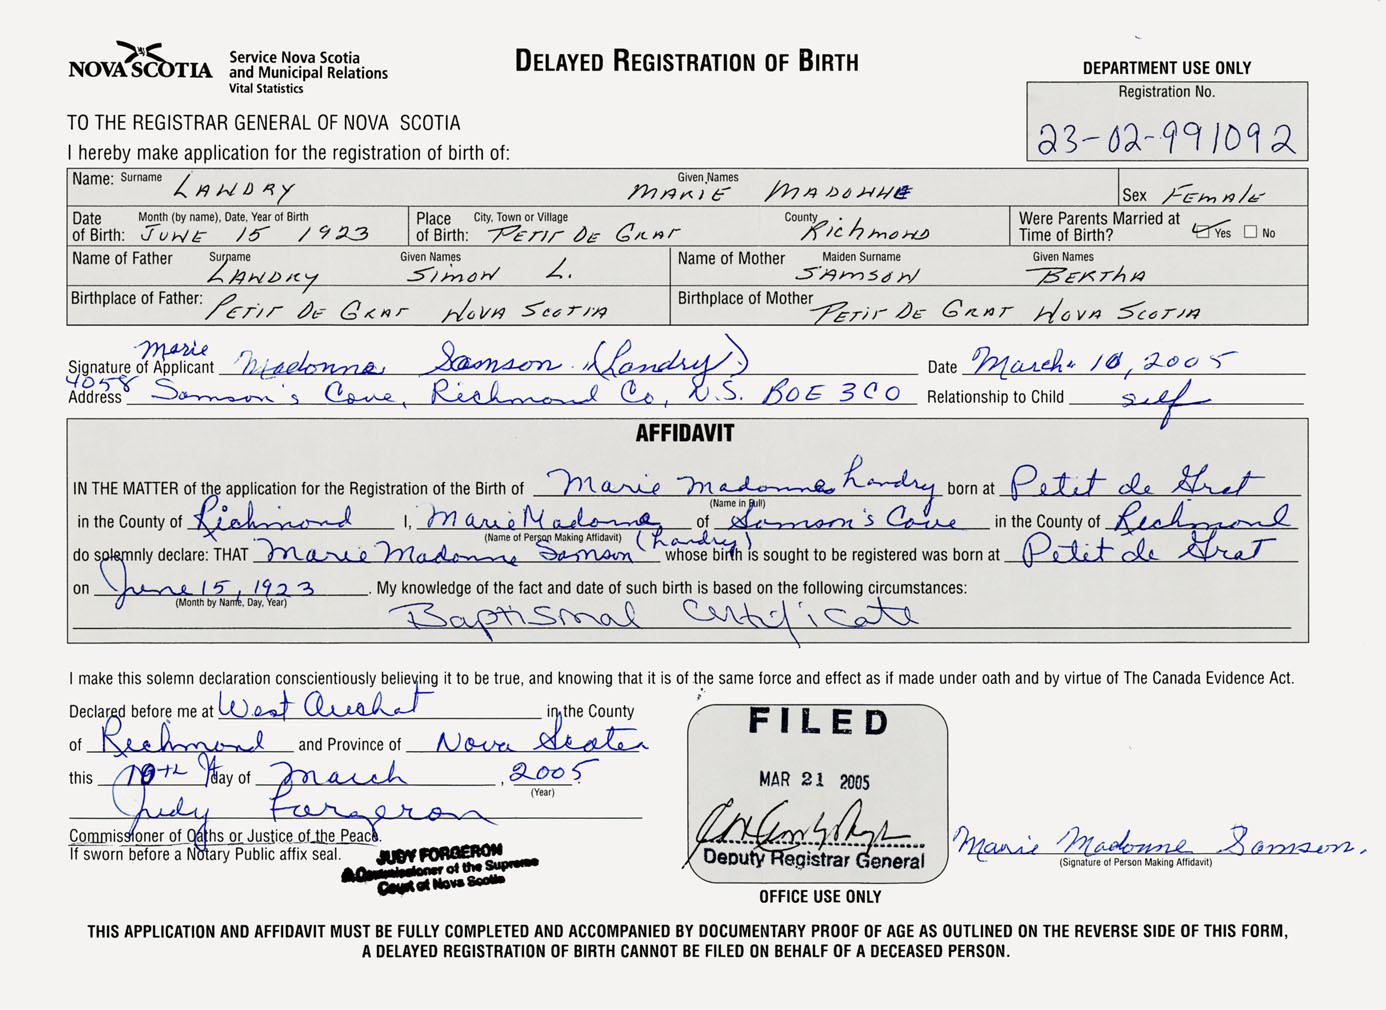 NOVA SCOTIA
Service Nova Scotia
and Municipal Relations
Vital Statistics
DELAYED REGISTRATION OF BIRTH
DEPARTMENT USE ONLY
Registration No.
23-02-991092
TO THE REGISTRAR GENERAL OF NOVA SCOTIA
I hereby make application for the registration of birth of:
Name: Surname LANDRY Given Names MARIE MADONNE Sex FEMALE
Date of Birth: Month (by name), Date, Year of Birth JUNE 15 1923 Place of Birth: City, Town or Village PETIT DE GRAT County Richmond Were Parents Married at Time of Birth? Yes No
Name of Father Surname LANDRY Given Names SIMON L. Name of Mother Maiden Surname SAMSON Given Names BERTHA
Birthplace of Father: PETIT DE GRAT NOVA SCOTIA Birthplace of Mother PETIT DE GRAT NOVA SCOTIA
Signature of Applicant Marie Madonna Samson (Landry) Date March 10, 2005
Address 4058 Samson's Cove, Richmond Co, N.S. BOE 3CO Relationship to Child self
AFFIDAVIT
IN THE MATTER of the application for the Registration of the Birth of Marie Madonna Landry born at Petit de Grat
(Name in Full)
in the County of Richmond I, Marie Madonna of Samson's Cove in the County of Richmond
(Name of Person Making Affidavit)
do solemnly declare: THAT Marie Madonne Samson (Landry) whose birth is sought to be registered was born at Petit de Grat
on June 15, 1923. My knowledge of the fact and date of such birth is based on the following circumstances:
(Month by Name, Day, Year)
Baptismal Certificate
I make this solemn declaration conscientiously believing it to be true, and knowing that it is of the same force and effect as if made under oath and by virtue of The Canada Evidence Act.
Declared before me at West Arichat in the County
of Richmond and Province of Nova Scotia
this 10th day of March, 2005
(Year)
Judy Forgeron
Commissioner of Oaths or Justice of the Peace.
If sworn before a Notary Public affix seal.
JUDY FORGERON
A Commissioner of the Supreme
Court of Nova Scotia
FILED
MAR 21 2005
Deputy Registrar General
OFFICE USE ONLY
Marie Madonne Samson.
(Signature of Person Making Affidavit)
THIS APPLICATION AND AFFIDAVIT MUST BE FULLY COMPLETED AND ACCOMPANIED BY DOCUMENTARY PROOF OF AGE AS OUTLINED ON THE REVERSE SIDE OF THIS FORM,
A DELAYED REGISTRATION OF BIRTH CANNOT BE FILED ON BEHALF OF A DECEASED PERSON.